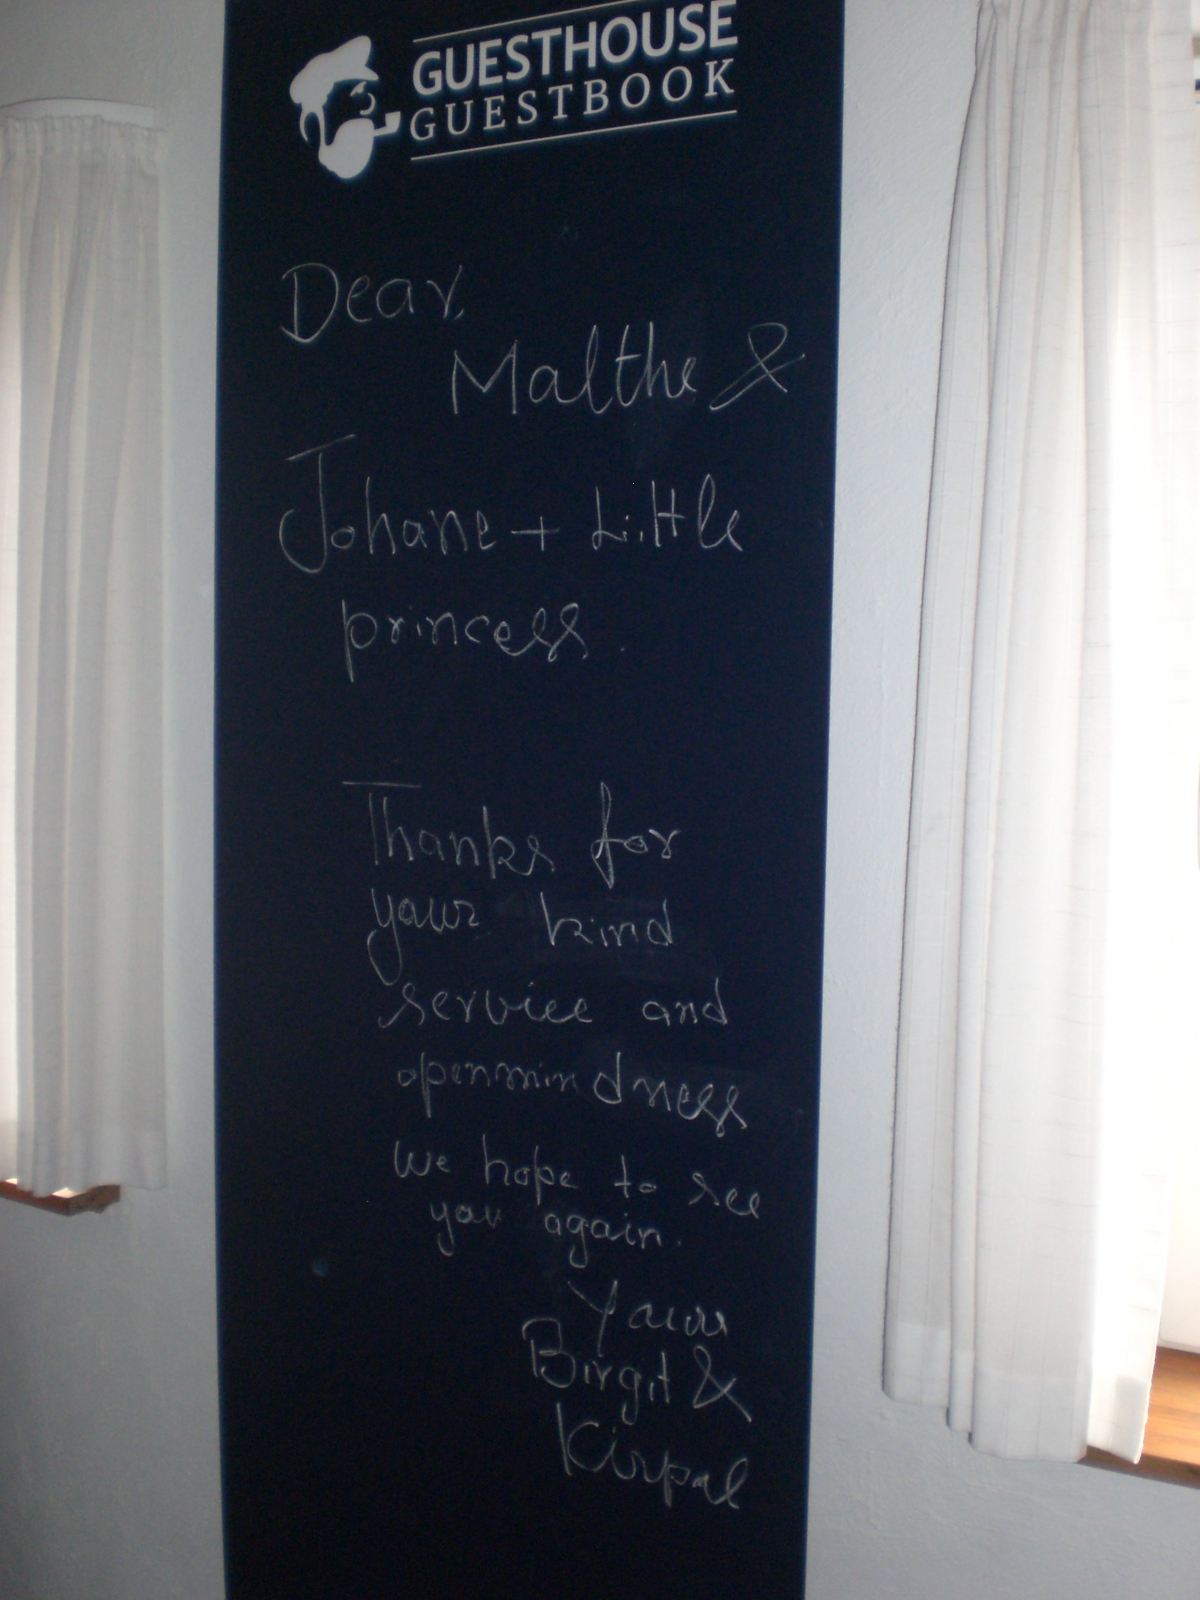 GUESTHOUSE
GUESTBOOK
Dear,
Malthe &
Johane + Little
princess.
Thanks for
your kind
service and
openmindness
We hope to see
you again.
Yours
Birgit &
Kirpal